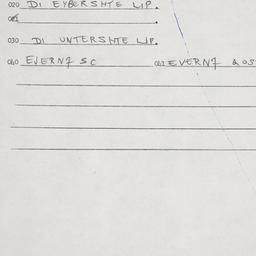 020 DI EYBERSHTE LIP.
030 DI UNTERSHTE LIP.
040 EJERNZ SC 042 EVERNZ & OS